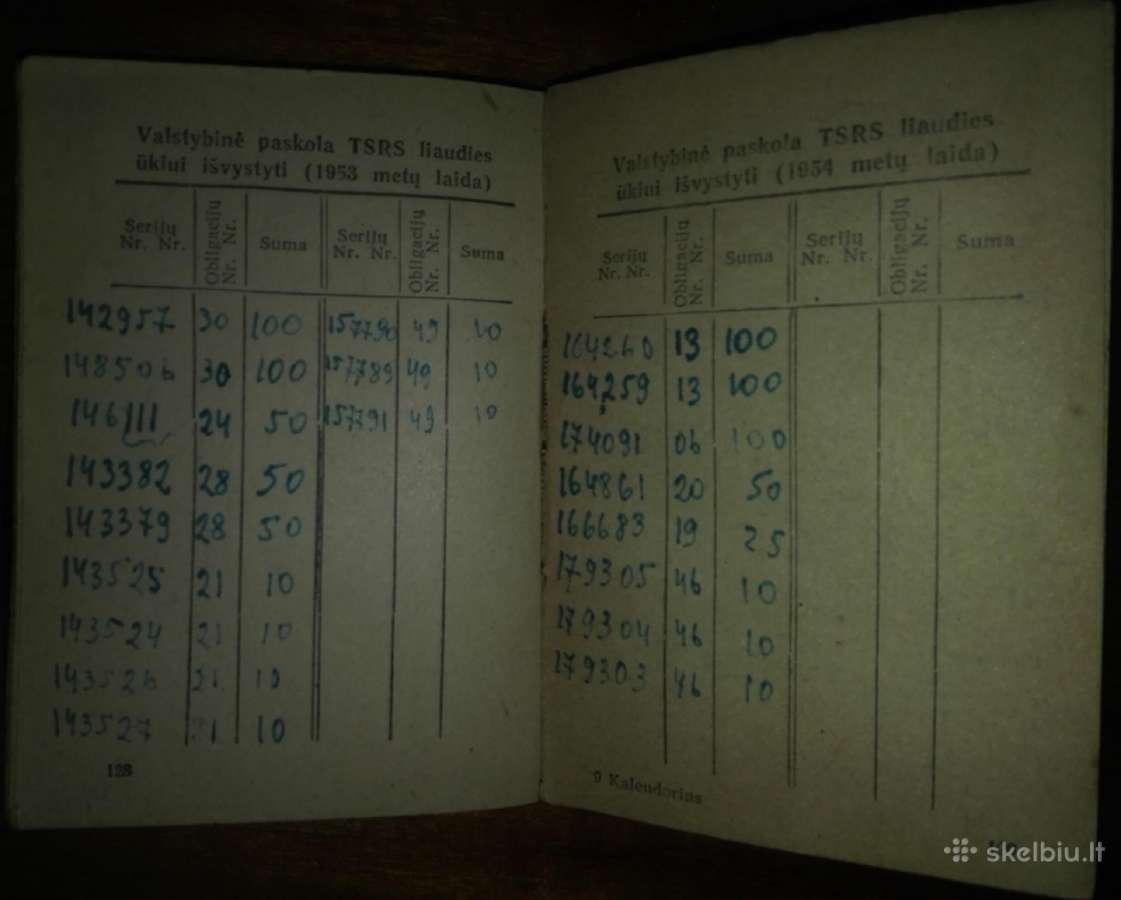 Valstybinė paskola TSRS liaudies
ūkiui išvystyti (1953 metų laida)
Serijų Nr. Nr. Obligacijų Nr. Nr. Suma Serijų Nr. Nr. Obligacijų Nr. Nr. Suma
142957 30 100 157790 49 10
148506 30 100 157789 49 10
146111 24 50 157791 49 10
143382 28 50
143379 28 50
143525 21 10
143524 21 10
143526 21 10
143527 21 10
128
Valstybinė paskola TSRS liaudies
ūkiui išvystyti (1954 metų laida)
Serijų Nr. Nr. Obligacijų Nr. Nr. Suma Serijų Nr. Nr. Obligacijų Nr. Nr. Suma
164260 13 100
164259 13 100
174091 06 100
164861 20 50
166683 19 25
179305 46 10
179304 46 10
179303 46 10
9 Kalendorius
skelbiu.lt